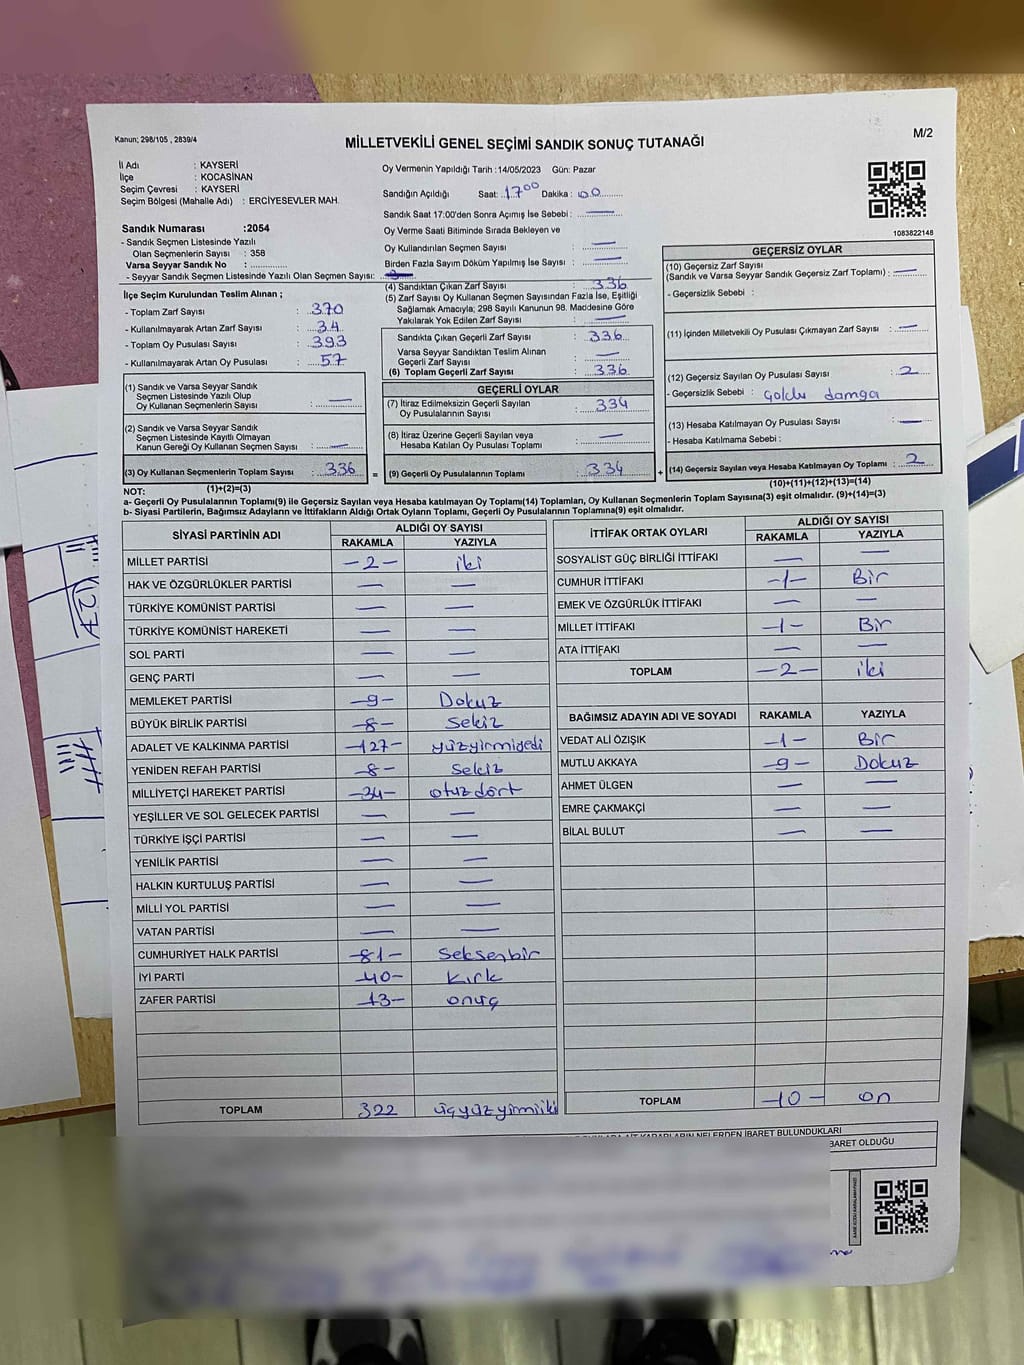 Kanun; 298/105 , 2839/4
MİLLETVEKİLİ GENEL SEÇİMİ SANDIK SONUÇ TUTANAĞI
M/2
İl Adı : KAYSERİ
İlçe : KOCASİNAN
Seçim Çevresi : KAYSERİ
Seçim Bölgesi (Mahalle Adı) : ERCİYESEVLER MAH.
Sandık Numarası :2054
- Sandık Seçmen Listesinde Yazılı
Olan Seçmenlerin Sayısı : 358
Varsa Seyyar Sandık No :
- Seyyar Sandık Seçmen Listesinde Yazılı Olan Seçmen Sayısı:
İlçe Seçim Kurulundan Teslim Alınan ;
- Toplam Zarf Sayısı : 370
- Kullanılmayarak Artan Zarf Sayısı : 34
- Toplam Oy Pusulası Sayısı : 393
- Kullanılmayarak Artan Oy Pusulası : 57
(1) Sandık ve Varsa Seyyar Sandık
Seçmen Listesinde Yazılı Olup
Oy Kullanan Seçmenlerin Sayısı : —
(2) Sandık ve Varsa Seyyar Sandık
Seçmen Listesinde Kayıtlı Olmayan
Kanun Gereği Oy Kullanan Seçmen Sayısı : —
(3) Oy Kullanan Seçmenlerin Toplam Sayısı : 336 =
(1)+(2)=(3)
Oy Vermenin Yapıldığı Tarih :14/05/2023 Gün: Pazar
Sandığın Açıldığı Saat: 17⁰⁰ Dakika : 00
Sandık Saat 17:00'den Sonra Açımış İse Sebebi : —
Oy Verme Saati Bitiminde Sırada Bekleyen ve
Oy Kullandırılan Seçmen Sayısı : —
Birden Fazla Sayım Döküm Yapılmış İse Sayısı : —
(4) Sandıktan Çıkan Zarf Sayısı : 336
(5) Zarf Sayısı Oy Kullanan Seçmen Sayısından Fazla İse, Eşitliği
Sağlamak Amacıyla; 298 Sayılı Kanunun 98. Maddesine Göre
Yakılarak Yok Edilen Zarf Sayısı : —
Sandıkta Çıkan Geçerli Zarf Sayısı : 336
Varsa Seyyar Sandıktan Teslim Alınan
Geçerli Zarf Sayısı : —
(6) Toplam Geçerli Zarf Sayısı : 336
GEÇERLİ OYLAR
(7) İtiraz Edilmeksizin Geçerli Sayılan
Oy Pusulalarının Sayısı : 334
(8) İtiraz Üzerine Geçerli Sayılan veya
Hesaba Katılan Oy Pusulası Toplamı : —
(9) Geçerli Oy Pusulalarının Toplamı : 334 +
1083822148
GEÇERSİZ OYLAR
(10) Geçersiz Zarf Sayısı
(Sandık ve Varsa Seyyar Sandık Geçersiz Zarf Toplamı) : —
- Geçersizlik Sebebi :
(11) İçinden Milletvekili Oy Pusulası Çıkmayan Zarf Sayısı : —
(12) Geçersiz Sayılan Oy Pusulası Sayısı : 2
- Geçersizlik Sebebi : çoklu damga
(13) Hesaba Katılmayan Oy Pusulası Sayısı : —
- Hesaba Katılmama Sebebi :
(14) Geçersiz Sayılan veya Hesaba Katılmayan Oy Toplamı : 2
(10)+(11)+(12)+(13)=(14)
NOT:
a- Geçerli Oy Pusulalarının Toplamı(9) ile Geçersiz Sayılan veya Hesaba katılmayan Oy Toplamı(14) Toplamları, Oy Kullanan Seçmenlerin Toplam Sayısına(3) eşit olmalıdır. (9)+(14)=(3)
b- Siyasi Partilerin, Bağımsız Adayların ve İttifakların Aldığı Ortak Oyların Toplamı, Geçerli Oy Pusulalarının Toplamına(9) eşit olmalıdır.
SİYASİ PARTİNİN ADI ALDIĞI OY SAYISI
RAKAMLA YAZIYLA
MİLLET PARTİSİ -2- iki
HAK VE ÖZGÜRLÜKLER PARTİSİ — —
TÜRKİYE KOMÜNİST PARTİSİ — —
TÜRKİYE KOMÜNİST HAREKETİ — —
SOL PARTİ — —
GENÇ PARTİ — —
MEMLEKET PARTİSİ -9- Dokuz
BÜYÜK BİRLİK PARTİSİ -8- Sekiz
ADALET VE KALKINMA PARTİSİ -127- yüzyirmiyedi
YENİDEN REFAH PARTİSİ -8- Sekiz
MİLLİYETÇİ HAREKET PARTİSİ -34- otuzdört
YEŞİLLER VE SOL GELECEK PARTİSİ — —
TÜRKİYE İŞÇİ PARTİSİ — —
YENİLİK PARTİSİ — —
HALKIN KURTULUŞ PARTİSİ — —
MİLLİ YOL PARTİSİ — —
VATAN PARTİSİ — —
CUMHURİYET HALK PARTİSİ -81- Seksenbir
İYİ PARTİ -40- Kırk
ZAFER PARTİSİ -13- onüç
TOPLAM 322 üçyüzyirmiiki
İTTİFAK ORTAK OYLARI ALDIĞI OY SAYISI
RAKAMLA YAZIYLA
SOSYALIST GÜÇ BİRLİĞİ İTTİFAKI — —
CUMHUR İTTİFAKI -1- Bir
EMEK VE ÖZGÜRLÜK İTTİFAKI — —
MİLLET İTTİFAKI -1- Bir
ATA İTTİFAKI — —
TOPLAM -2- iki
BAĞIMSIZ ADAYIN ADI VE SOYADI RAKAMLA YAZIYLA
VEDAT ALİ ÖZIŞIK -1- Bir
MUTLU AKKAYA -9- Dokuz
AHMET ÜLGEN — —
EMRE ÇAKMAKÇİ — —
BİLAL BULUT — —
TOPLAM -10- on
NELERDEN İBARET BULUNDUKLARI
BARET OLDUĞU
127